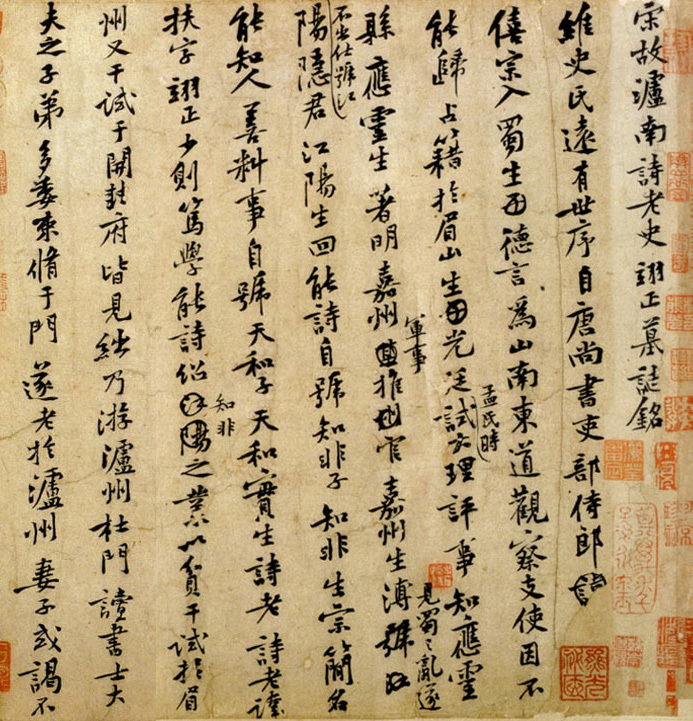 宋故瀘南詩老史翊正墓誌銘
維史氏遠有世序自唐尚書吏部侍郎
僖宗入蜀生德言為山南東道觀察支使因不
孟氏時
能歸占籍於眉山生光廷試大理評事知應靈
軍事
見蜀之亂遂
縣應靈生著明嘉州推官嘉州生溥號江
不出仕號江
陽隱君江陽生回能詩自號知非子知非生宗簡名
能知人善料事自號天和子天和實生詩老詩老諱
知非
扶字翊正少則篤學能詩紹陽之業以貧干試於眉
州又干試于開封府皆見絀乃游瀘州杜門讀書士大
夫之子弟多委束脩于門遂老於瀘州妻子或謁不